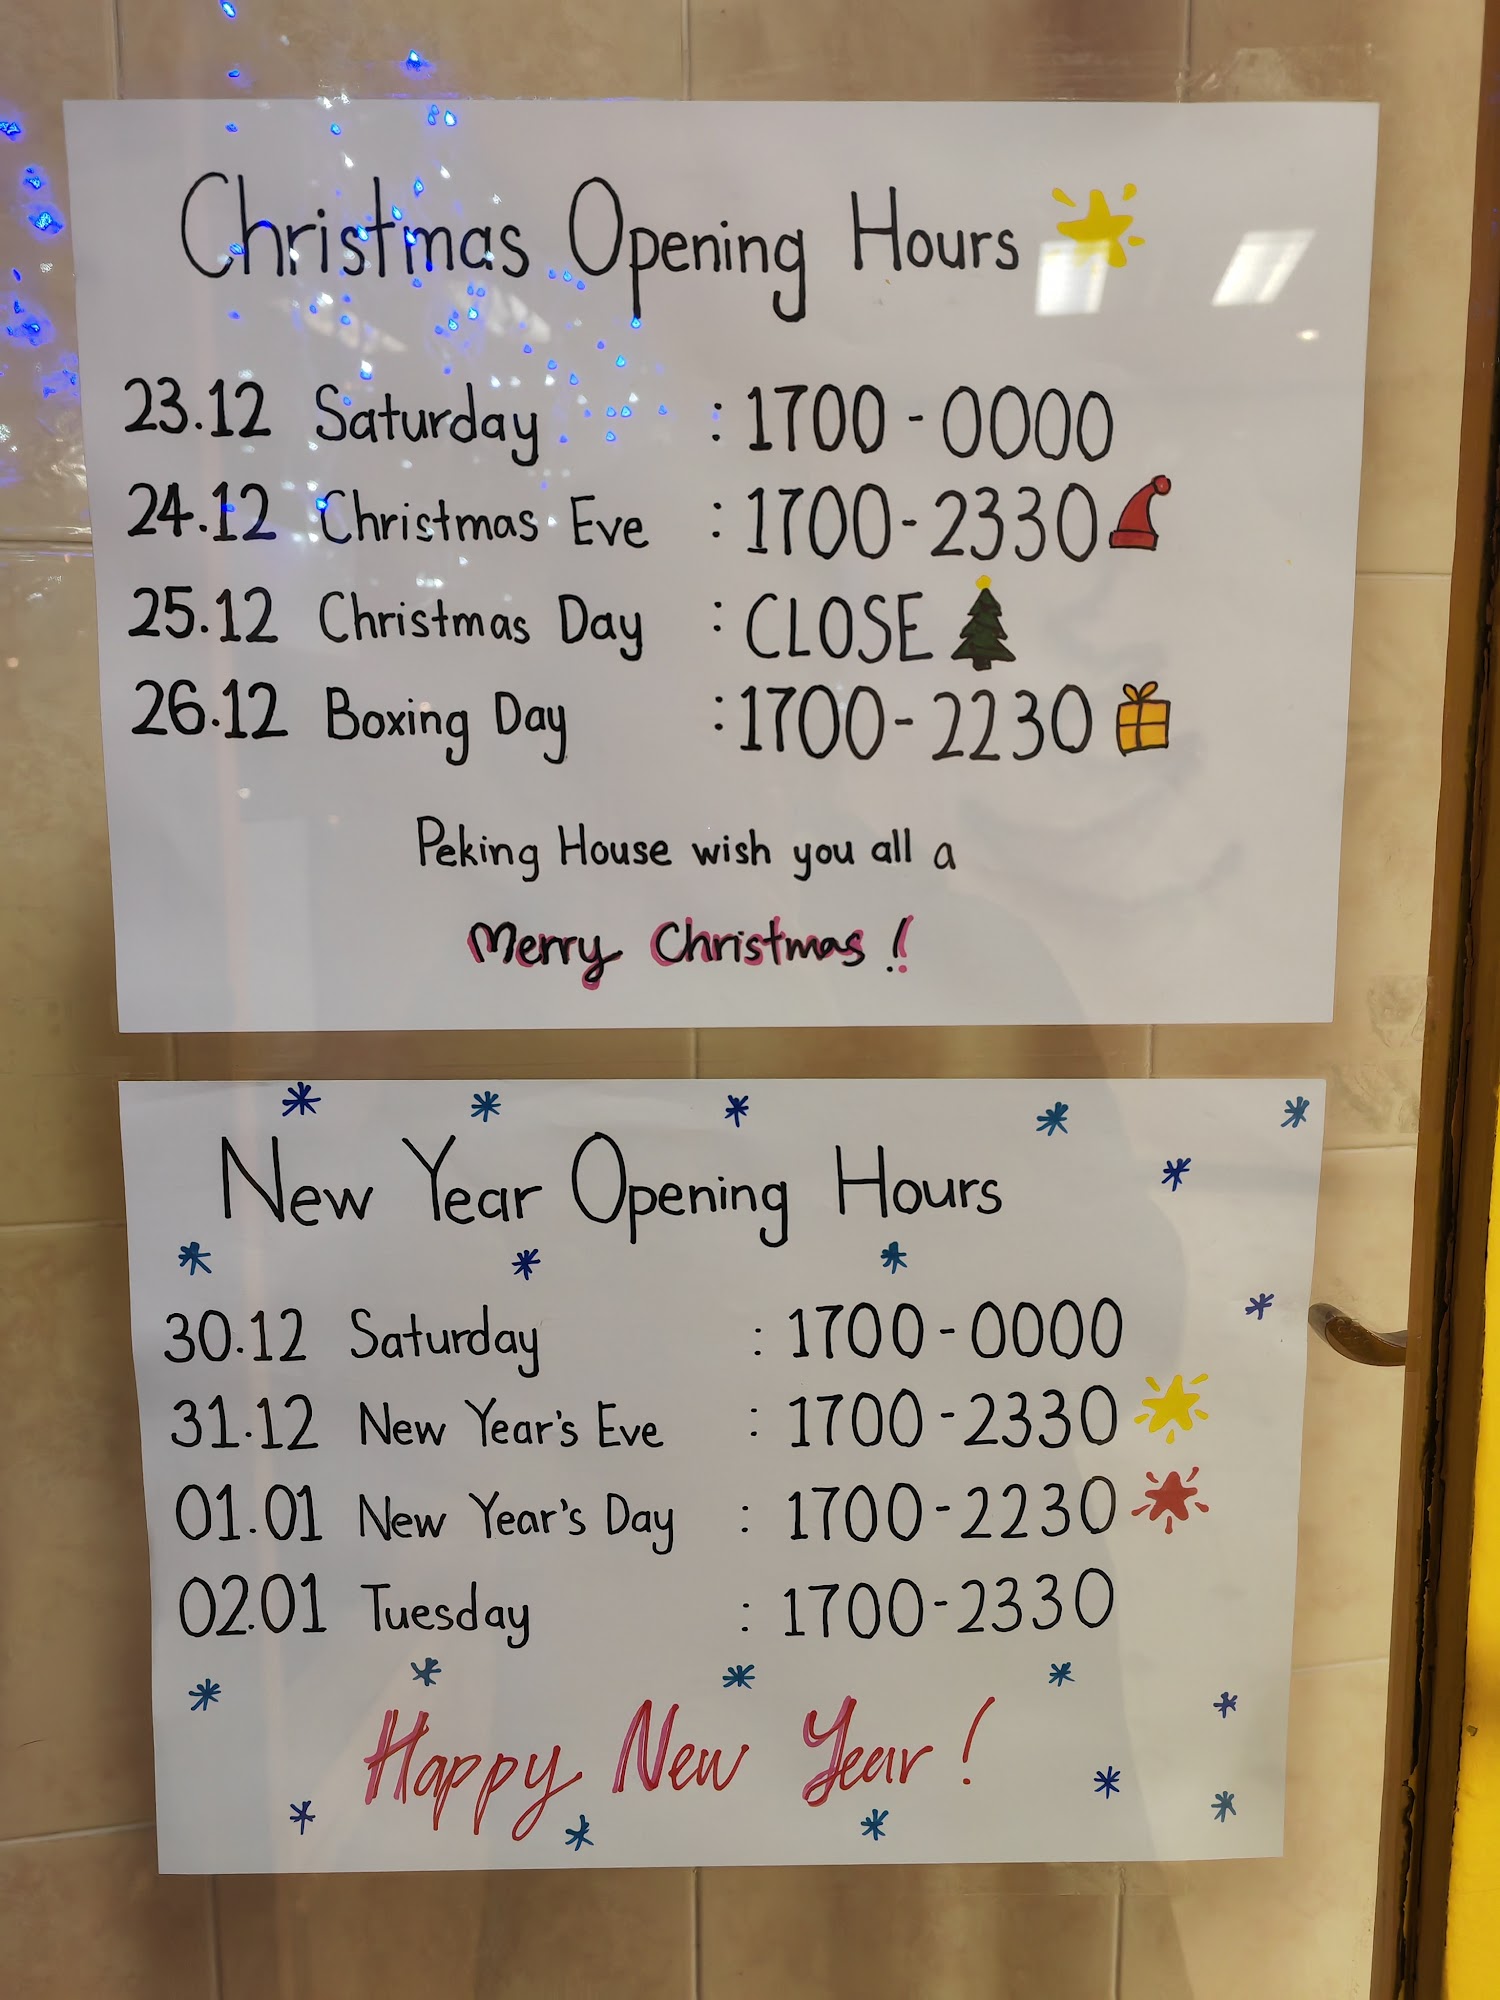 Christmas Opening Hours
23.12 Saturday : 1700 - 0000
24.12 Christmas Eve : 1700 - 2330
25.12 Christmas Day : CLOSE
26.12 Boxing Day : 1700 - 2230
Peking House wish you all a
Merry Christmas !!
New Year Opening Hours
30.12 Saturday : 1700 - 0000
31.12 New Year's Eve : 1700 - 2330
01.01 New Year's Day : 1700 - 2230
02.01 Tuesday : 1700 - 2330
Happy New Year !